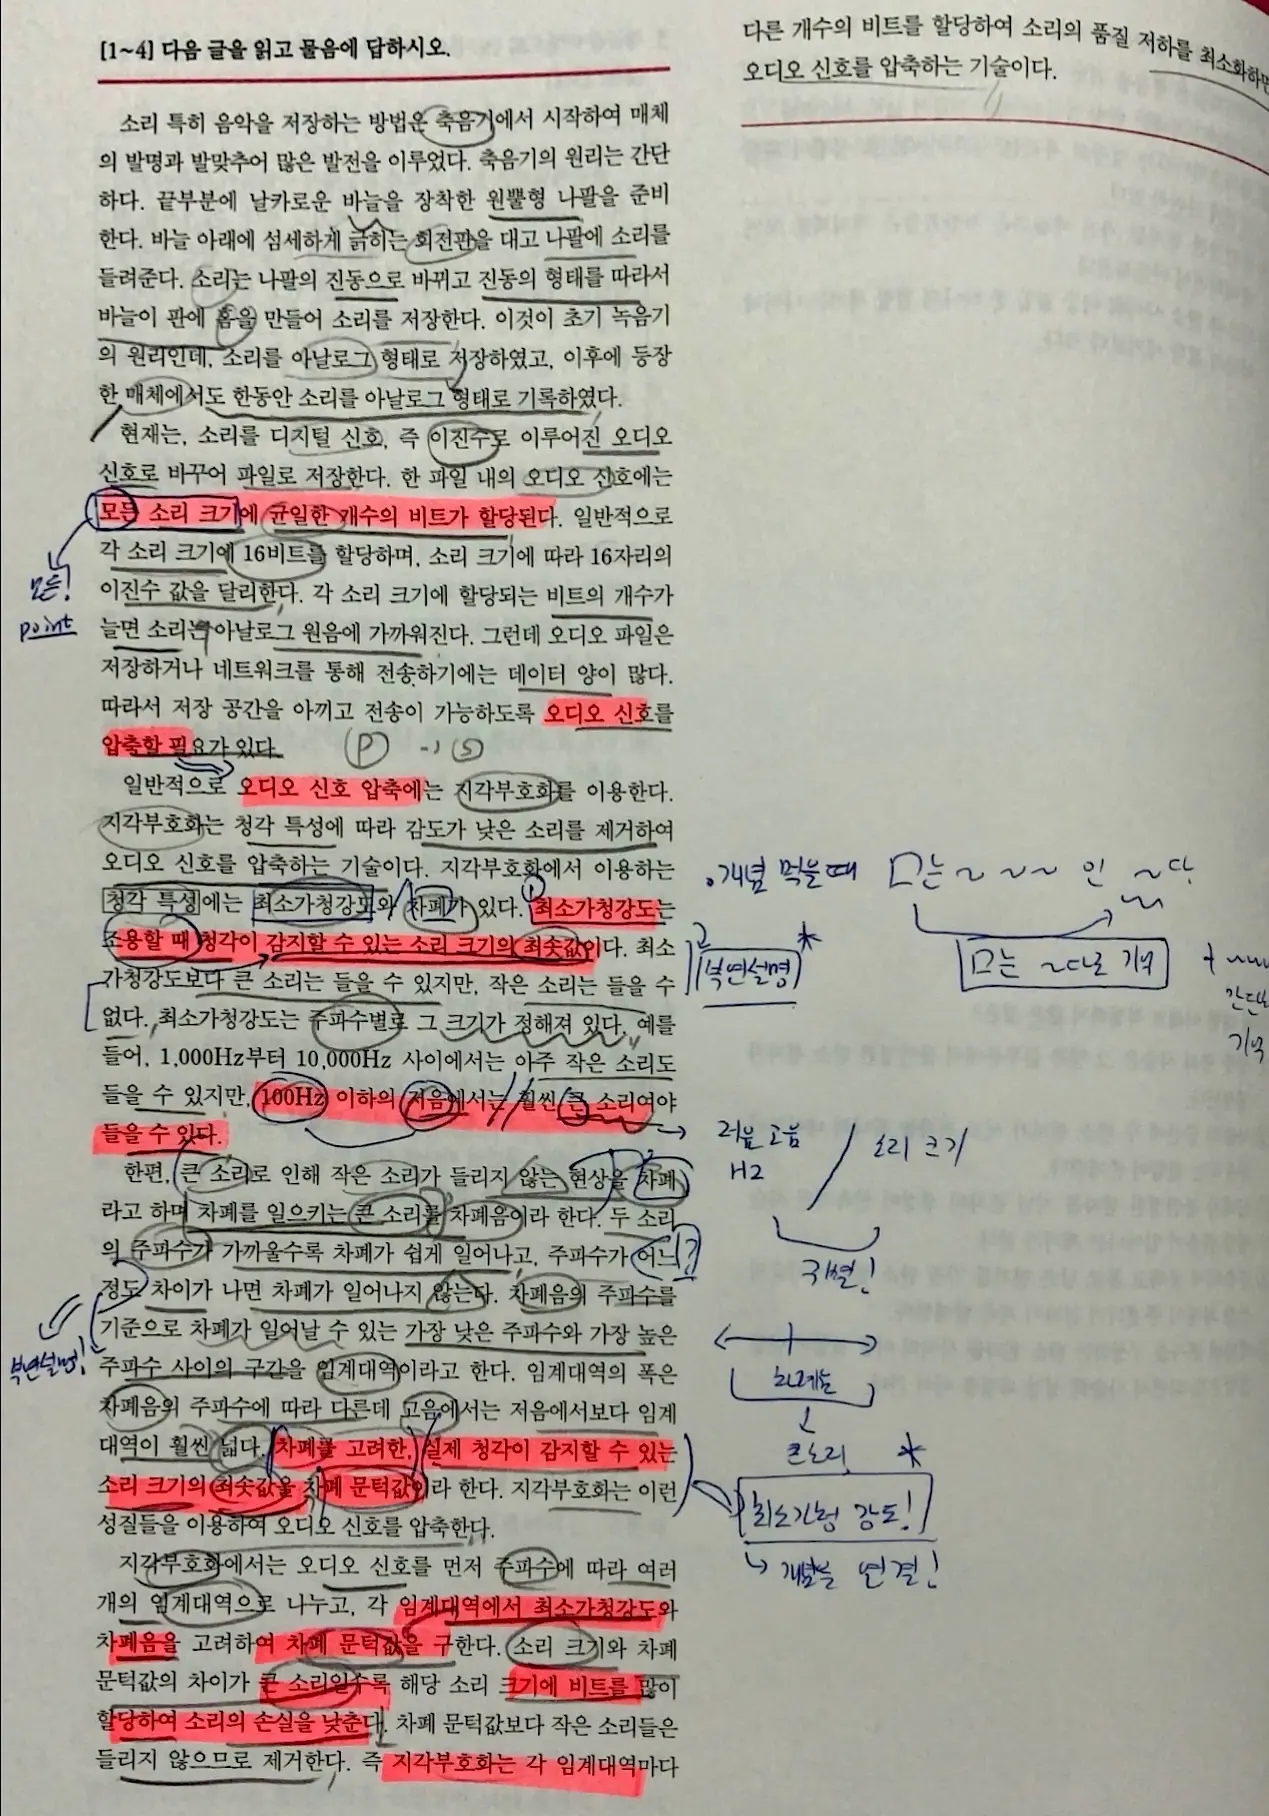 [1~4] 다음 글을 읽고 물음에 답하시오.
소리 특히 음악을 저장하는 방법은 축음기에서 시작하여 매체
의 발명과 발맞추어 많은 발전을 이루었다. 축음기의 원리는 간단
하다. 끝부분에 날카로운 바늘을 장착한 원뿔형 나팔을 준비
한다. 바늘 아래에 섬세하게 긁히는 회전판을 대고 나팔에 소리를
들려준다. 소리는 나팔의 진동으로 바뀌고 진동의 형태를 따라서
바늘이 판에 홈을 만들어 소리를 저장한다. 이것이 초기 녹음기
의 원리인데, 소리를 아날로그 형태로 저장하였고, 이후에 등장
한 매체에서도 한동안 소리를 아날로그 형태로 기록하였다.
현재는, 소리를 디지털 신호, 즉 이진수로 이루어진 오디오
신호로 바꾸어 파일로 저장한다. 한 파일 내의 오디오 신호에는
모든 소리 크기에 균일한 개수의 비트가 할당된다. 일반적으로
각 소리 크기에 16비트를 할당하며, 소리 크기에 따라 16자리의
이진수 값을 달리한다. 각 소리 크기에 할당되는 비트의 개수가
늘면 소리는 아날로그 원음에 가까워진다. 그런데 오디오 파일은
저장하거나 네트워크를 통해 전송하기에는 데이터 양이 많다.
따라서 저장 공간을 아끼고 전송이 가능하도록 오디오 신호를
압축할 필요가 있다.
P → S
모든!
point
일반적으로 오디오 신호 압축에는 지각부호화를 이용한다.
지각부호화는 청각 특성에 따라 감도가 낮은 소리를 제거하여
오디오 신호를 압축하는 기술이다. 지각부호화에서 이용하는
청각 특성에는 최소가청강도와 차폐가 있다. 최소가청강도는
조용할 때 청각이 감지할 수 있는 소리 크기의 최솟값이다. 최소
가청강도보다 큰 소리는 들을 수 있지만, 작은 소리는 들을 수
없다. 최소가청강도는 주파수별로 그 크기가 정해져 있다. 예를
들어, 1,000Hz부터 10,000Hz 사이에서는 아주 작은 소리도
들을 수 있지만, 100Hz 이하의 저음에서는 훨씬 큰 소리여야
들을 수 있다.
한편, 큰 소리로 인해 작은 소리가 들리지 않는 현상을 차폐
라고 하며 차폐를 일으키는 큰 소리를 차폐음이라 한다. 두 소리
의 주파수가 가까울수록 차폐가 쉽게 일어나고, 주파수가 어느
정도 차이가 나면 차폐가 일어나지 않는다. 차폐음의 주파수를
기준으로 차폐가 일어날 수 있는 가장 낮은 주파수와 가장 높은
주파수 사이의 구간을 임계대역이라고 한다. 임계대역의 폭은
차폐음의 주파수에 따라 다른데 고음에서는 저음에서보다 임계
대역이 훨씬 넓다. 차폐를 고려한, 실제 청각이 감지할 수 있는
소리 크기의 최솟값을 차폐 문턱값이라 한다. 지각부호화는 이런
성질들을 이용하여 오디오 신호를 압축한다.
부연설명!
지각부호화에서는 오디오 신호를 먼저 주파수에 따라 여러
개의 임계대역으로 나누고, 각 임계대역에서 최소가청강도와
차폐음을 고려하여 차폐 문턱값을 구한다. 소리 크기와 차폐
문턱값의 차이가 큰 소리일수록 해당 소리 크기에 비트를 많이
할당하여 소리의 손실을 낮춘다. 차폐 문턱값보다 작은 소리들은
들리지 않으므로 제거한다. 즉 지각부호화는 각 임계대역마다
다른 개수의 비트를 할당하여 소리의 품질 저하를 최소화하면
오디오 신호를 압축하는 기술이다.
개념 먹을때 □는 ~ ~ ~ 인 ~다.
부연설명 *
□는 ~다로 기억
기억
저음 고음 / 소리 크기
Hz
구별!
큰소리
*
최소가청 강도!
↳ 개념들 연결!